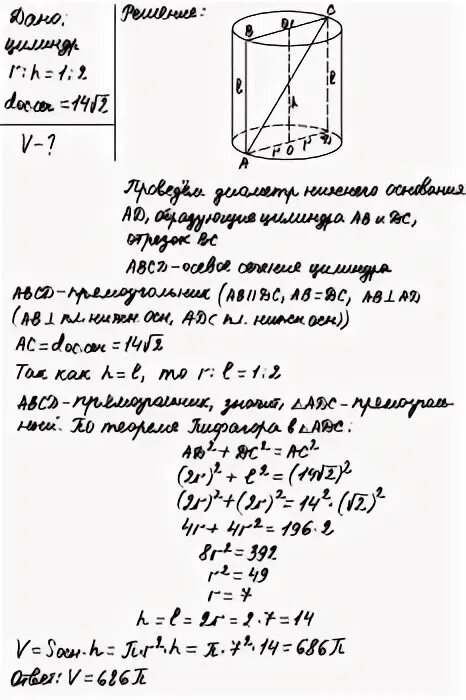 Дано:
цилиндр
r:h=1:2
dос.сеч=14√2
V-?
Решение:
B
O1
C
l
h
l
A
r
O
r
D
Проведём диаметр нижнего основания
AD, образующие цилиндра AB и DC,
отрезок BC
ABCD-осевое сечение цилиндра
ABCD-прямоугольник (AB||DC, AB=DC, AB⊥AD
(AB⊥ пл. нижн осн, AD⊂ пл. нижн осн))
AC=dос.сеч=14√2
Так как h=l, то r:l=1:2
ABCD-прямоугольник, значит, △ADC-прямоуголь-
ный. По теореме Пифагора в △ADC:
AD²+DC²=AC²
(2r)²+l²=(14√2)²
(2r)²+(2r)²=14²·(√2)²
4r+4r²=196·2
8r²=392
r²=49
r=7
h=l=2r=2·7=14
V=Sосн·h=π·r²·h=π·7²·14=686π
Ответ: V=686π